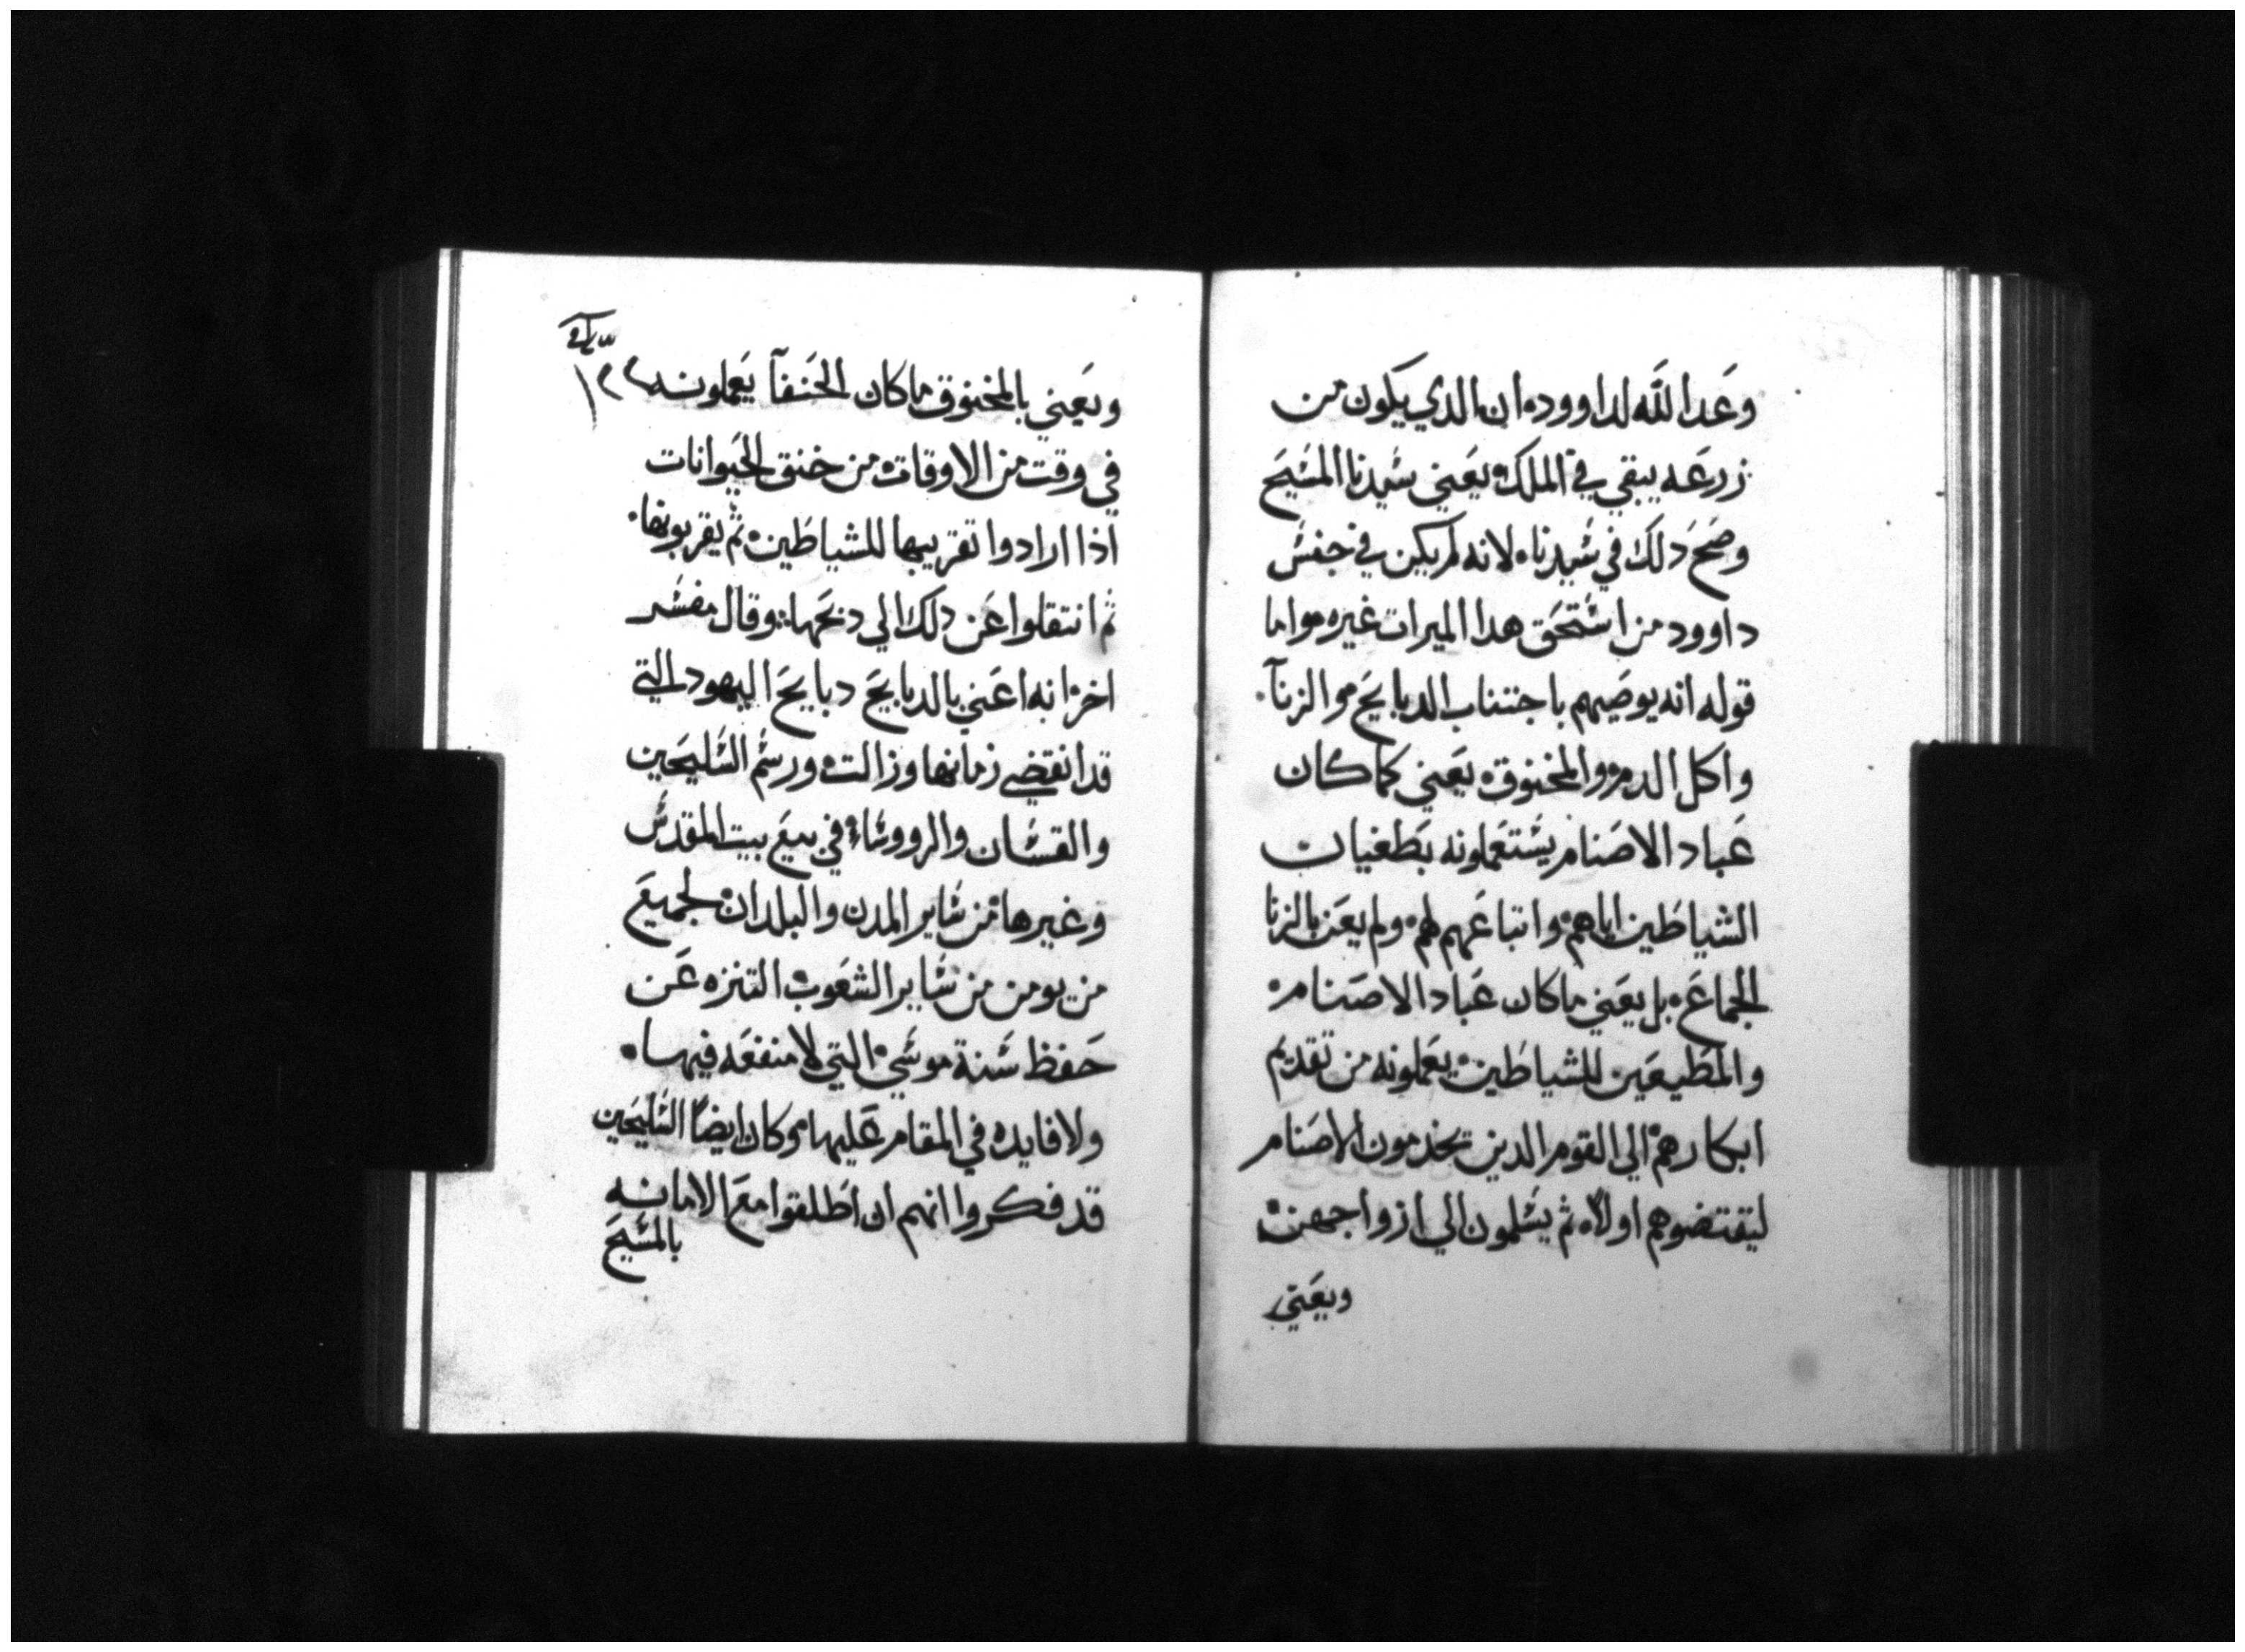 وعد الله لداوود ان الدي يكون من
زرعه يبقي في الملك يعني سيدنا المسيح
وصح دلك في سيدنا لانه لم يكن في جنس
داوود من استحق هدا الميرات غيره واما
قوله انه يوصيهم باجتناب الدبايح والزنآ
واكل الدم والمخنوق يعني كما كان
عباد الاصنام يستعملونه بطغيات
الشياطين اياهم واتباعهم لهم ولم يعن بالزنا
الجماع بل يعني ما كان عباد الاصنام
والمطيعين للشياطين يعملونه من تقديم
ابكارهم الي القوم الدين يخدمون الاصنام
ليقتضوهم اولاً ثم يسلمون الي ازواجهن
ويعني
١٢٢
ويعني بالمخنوق ما كان الحنفآ يعملونه
في وقت من الاوقات من خنق الحيوانات
اذا ارادوا تقريبها للشياطين ثم يقربونها
ثم انتقلوا عن دلك الي دبحها وقال مفسر
اخر انه اعني بالدبايح دبايح اليهود التي
قد انقضي زمانها وزالت ورسم السليحين
والقسان والرووسا في بيع بيت المقدس
وغيرها من ساير المدن والبلدان لجميع
من يومن من ساير الشعوب التنزه عن
حفظ سنة موسي التي لا منفعه فيها
ولا فايده في المقام عليها وكان ايضاً السليحين
قد فكروا انهم ان اطلقوا مع الامانه
بالمسيح